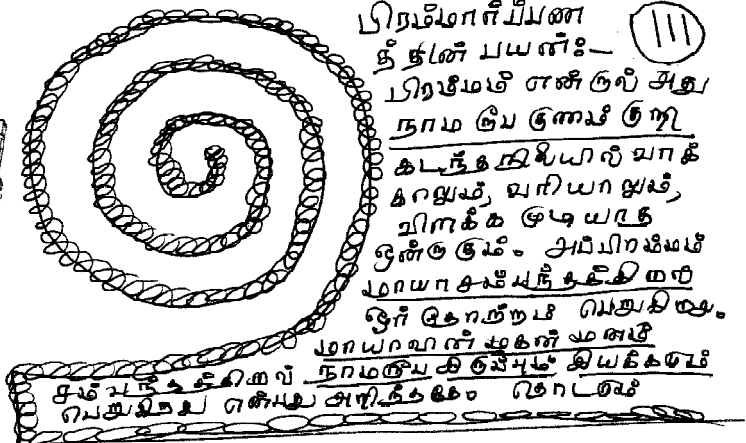 பிரம்மார்ப்பண
த்தின் பயன்:-
111
பிரம்மம் என்றால் அது
நாம ரூப குணம் குறி
கடந்தநிலையில் வாக்
காலும், வரியாலும்,
விளக்க முடியாத
ஒன்றாகும். அப்பிரம்மம்
மாயாசம்பந்தத்தில்
ஓர் தோற்றம் பெறுகிறது.
மாயாவின் முதன்
சம்பந்தத்தில் நாமரூப இயக்கமும்
பெறுகிறது என்பது அறிந்ததே. தொட்டும்